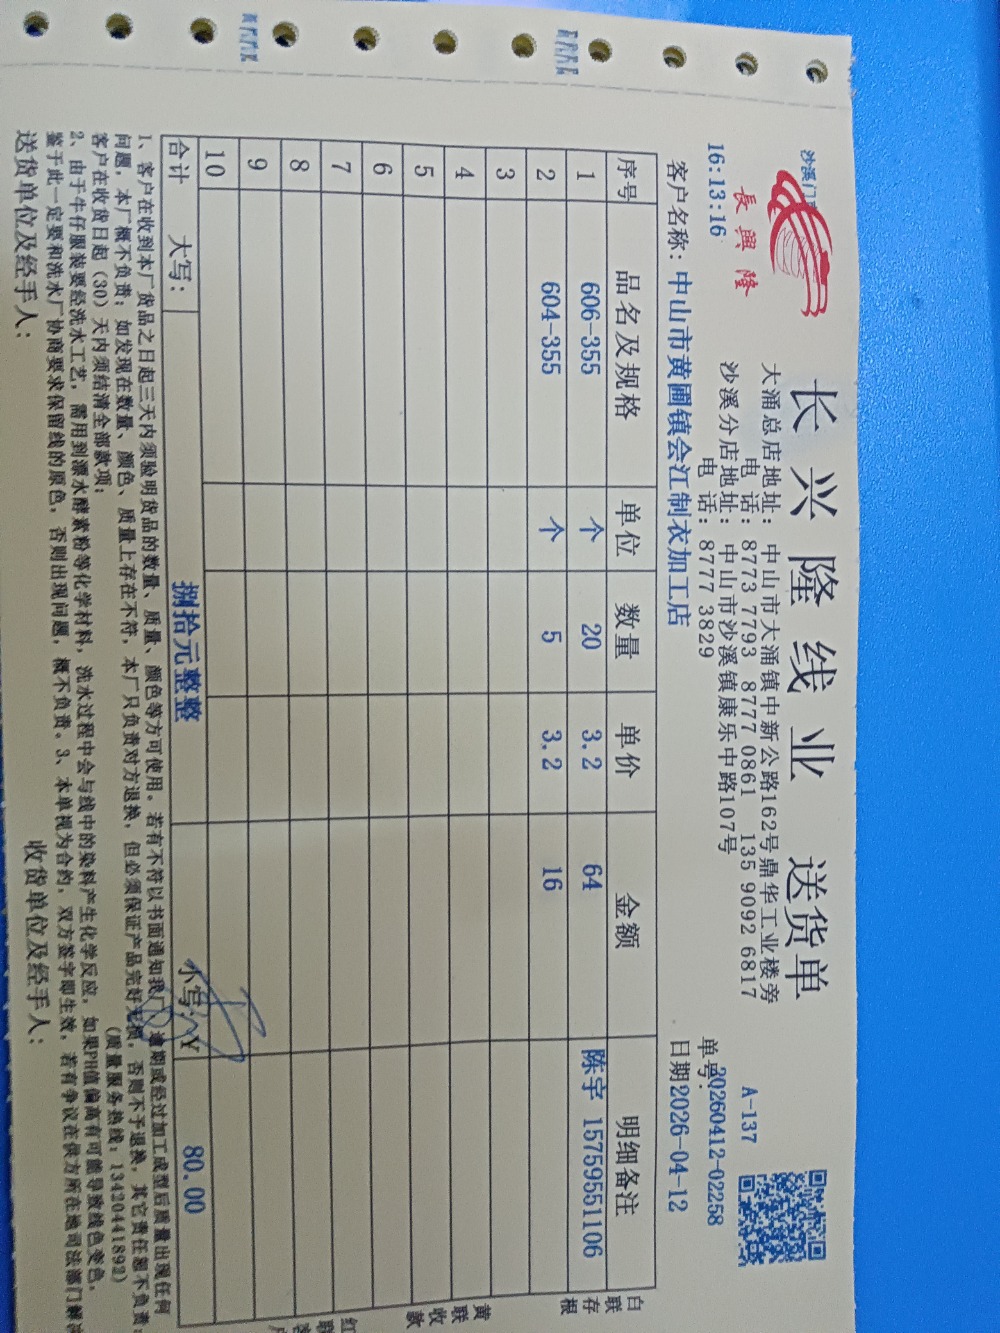 沙溪门
長興隆
长兴隆线业 送货单
大涌总店地址:中山市大涌镇中新公路162号鼎华工业楼旁
电 话:8773 7793 8777 0861 135 9092 6817
沙溪分店地址:中山市沙溪镇康乐中路107号
电 话:8777 3829
A-137
16:13:16
单号:20260412-02258
客户名称:中山市黄圃镇会江制衣加工店
日期2026-04-12
序号 品名及规格 单位 数量 单价 金额 明细备注
1 606-355 个 20 3.2 64 陈宇 15759551106
2 604-355 个 5 3.2 16
3
4
5
6
7
8
9
10
合计 大写: 捌拾元整整 小写:¥ 80.00
1、客户在收到本厂货品之日起三天内须验明货品的数量、质量、颜色等方可使用。若有不符以书面通知我厂,逾期或经过加工成型后质量出现任何
问题,本厂概不负责;如发现在数量、颜色、质量上存在不符,本厂只负责对方退换,但必须保证产品完好无损,否则不予退换,其它责任恕不负责;
客户在收货日起(30)天内须结清全部款项; (质量服务热线:13420441892)
2、由于牛仔服装要经洗水工艺,需用到漂水酵素粉等化学材料,洗水过程中会与线中的染料产生化学反应,如果PH值偏高有可能导致线色变色,
鉴于此一定要和洗水厂协商要求保留线的原色,否则出现问题,概不负责。3、本单视为合约,双方签字即生效,若有争议在供方所在地司法部门解决
送货单位及经手人: 收货单位及经手人:
白联存根
黄联收款
红联